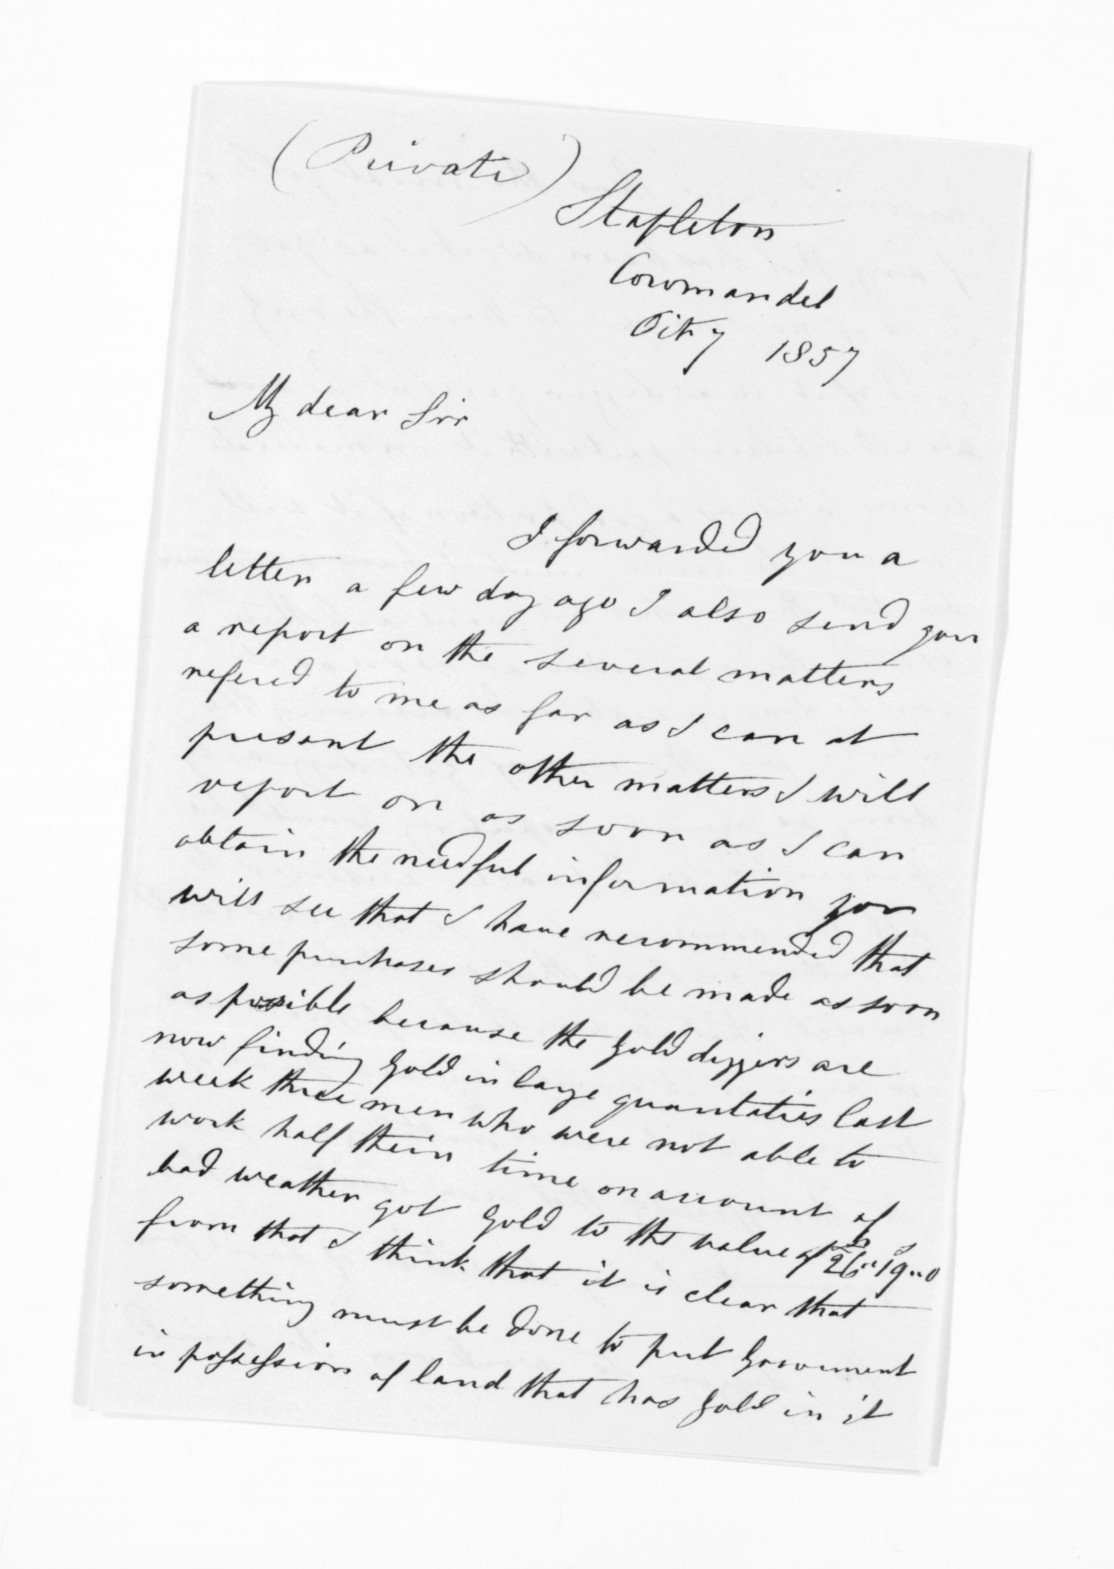 (Private)
Stapleton
Coromandel
Oity 1857
My dear Sir
I forwarded you a
letter a few day ago I also send you
a report on the several matters
refered to me as far as I can at
present the other matters I will
report on as soon as I can
obtain the needful information you
will see that I have recommended that
some purchases should be made as soon
as possible because the gold diggers are
now finding gold in large quantaties last
week three men who were not able to
work half their time on account of
bad weather got gold to the value of £26..19..0
from that I think that it is clear that
something must be done to put Government
in possession of land that has gold in it